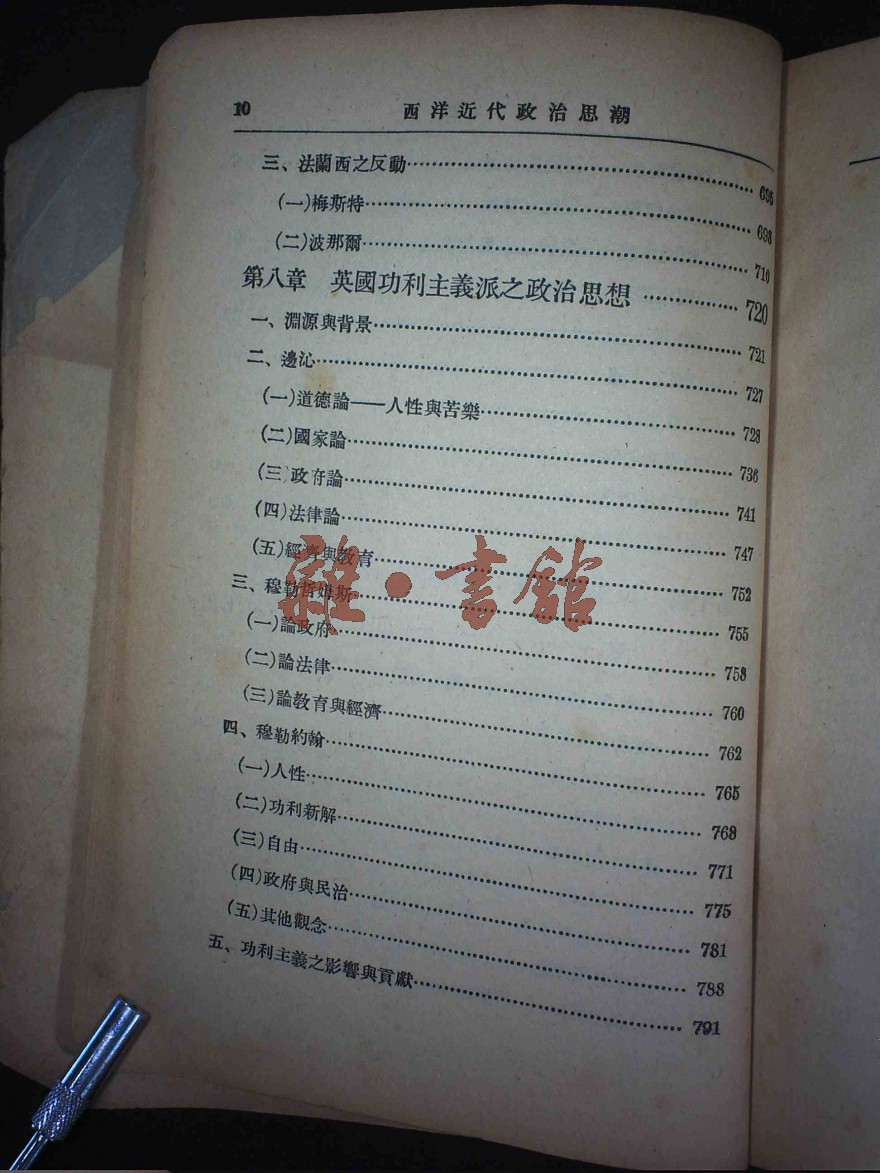 10 西洋近代政治思潮
三、法蘭西之反動
(一)梅斯特 698
(二)波那爾 710
第八章 英國功利主義派之政治思想 720
一、淵源與背景 721
二、邊沁 727
(一)道德論——人性與苦樂 728
(二)國家論 736
(三)政府論 741
(四)法律論 747
(五)經濟與教育 752
三、穆勒哲姆斯 755
(一)論政府 758
(二)論法律 760
(三)論教育與經濟 762
四、穆勒約翰 765
(一)人性 768
(二)功利新解 771
(三)自由 775
(四)政府與民治 781
(五)其他觀念 788
五、功利主義之影響與貢獻 791
雜·書館